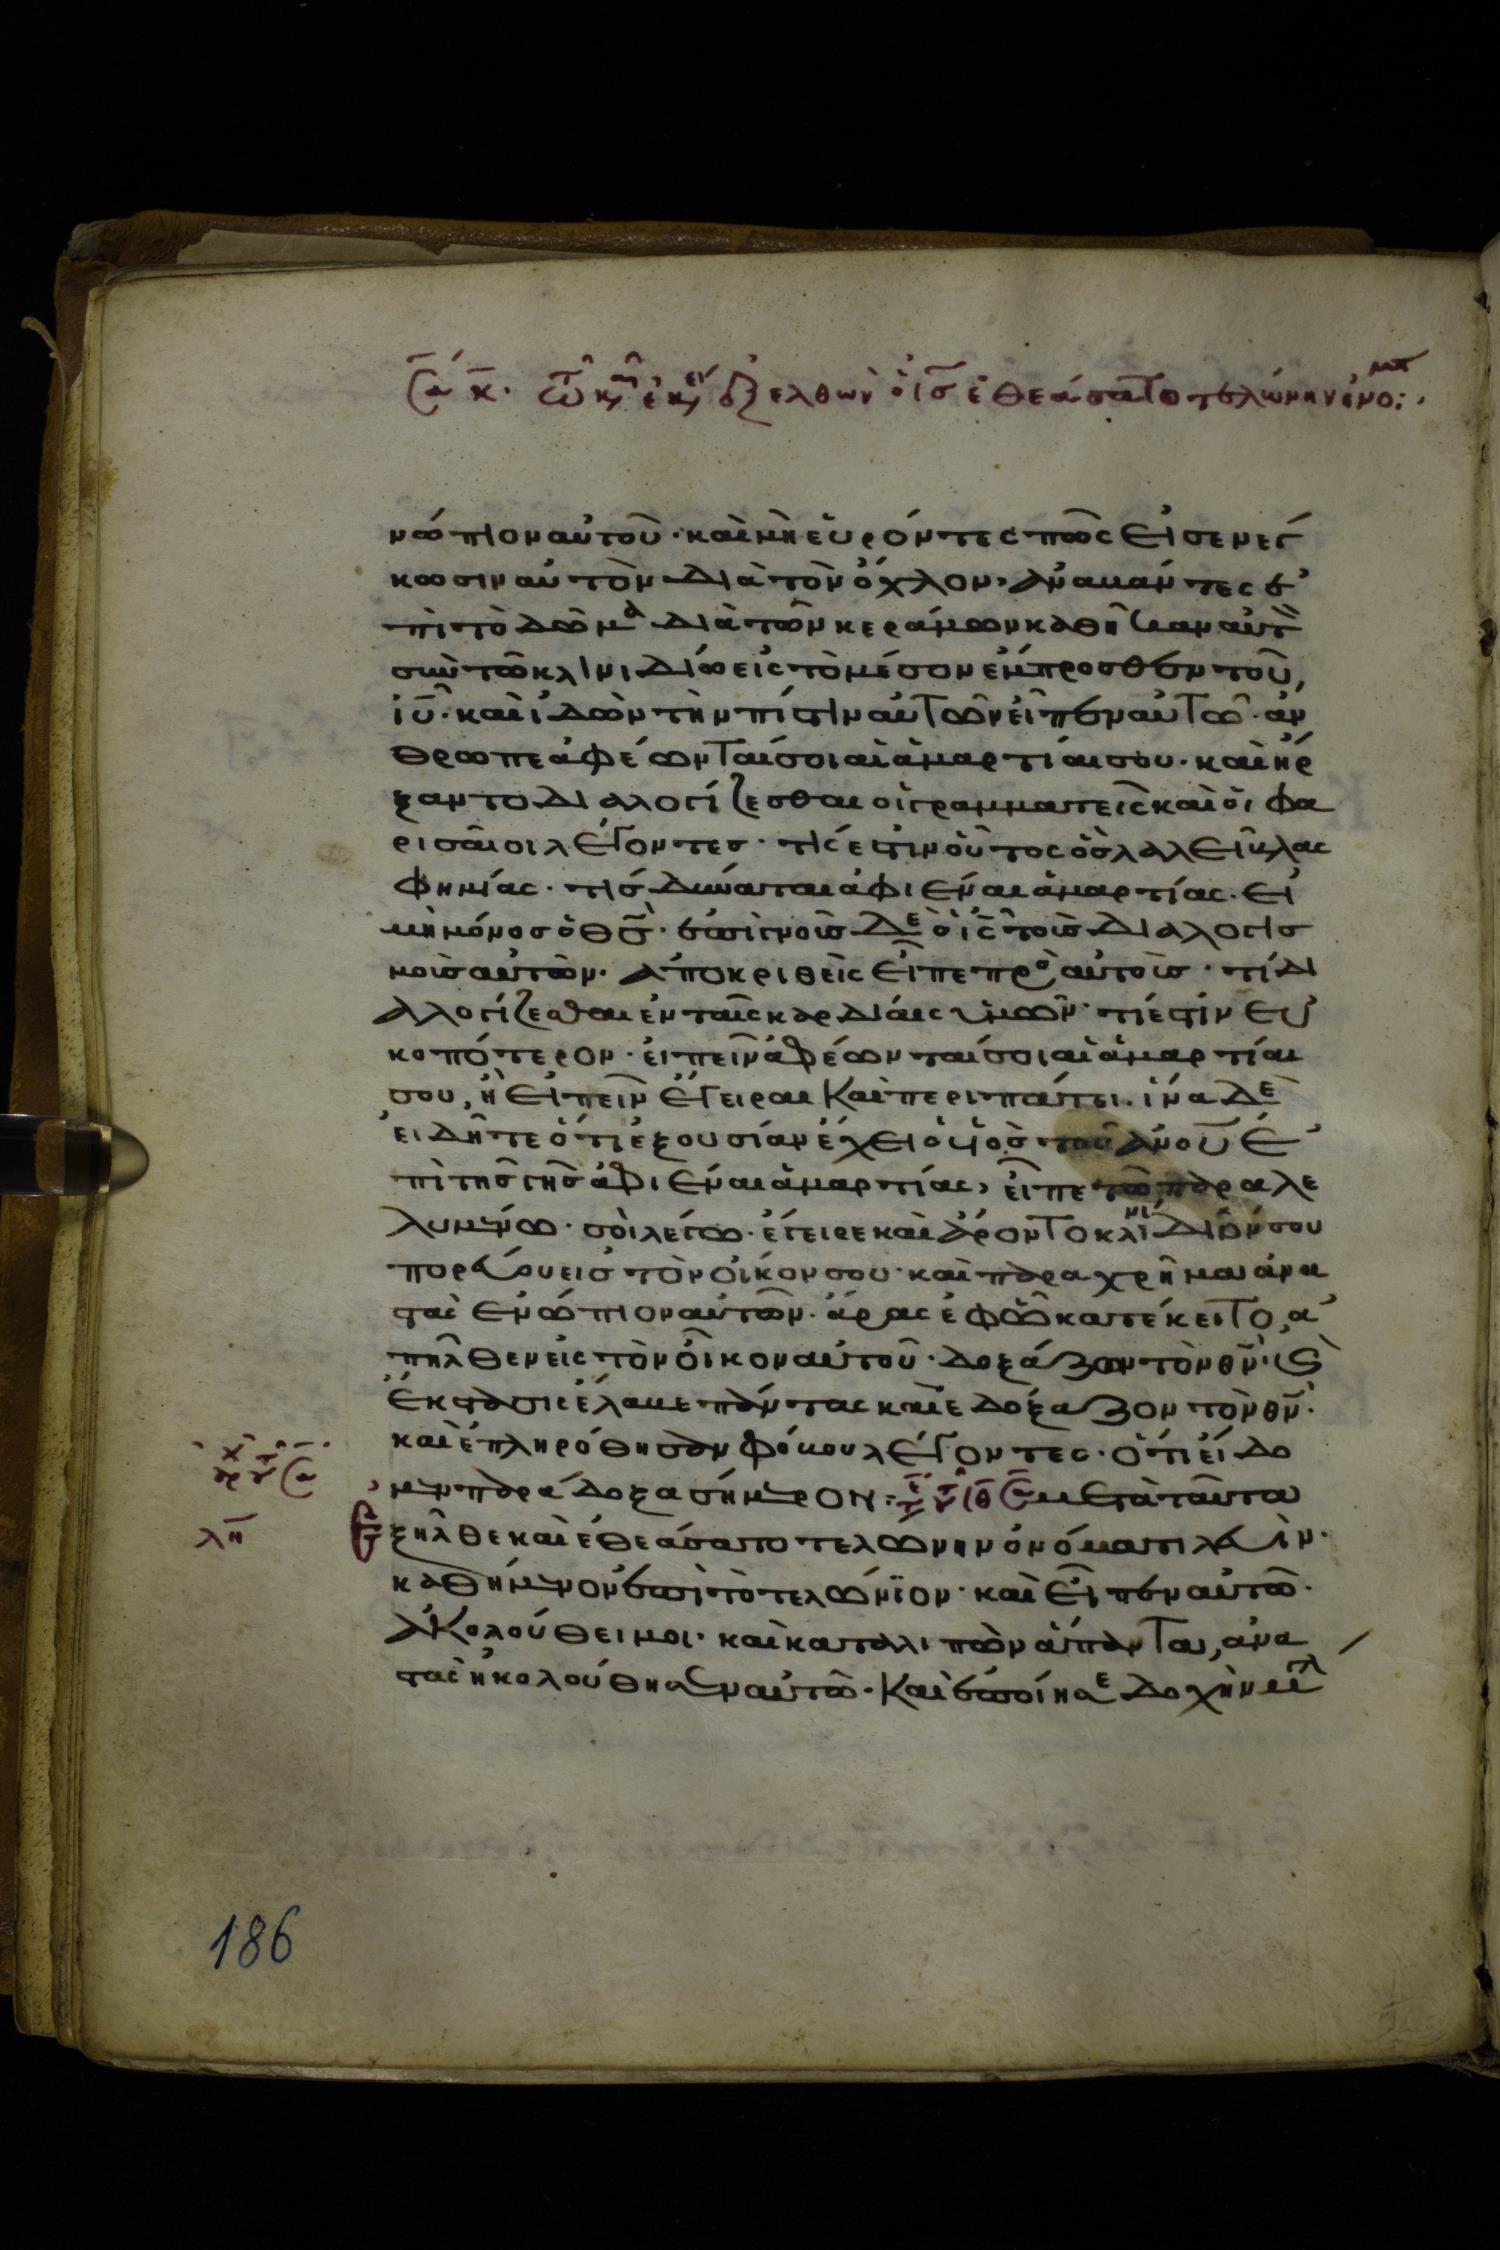 ἐξελθών ὁ ις ἐθεάσατο τελώνην
νώπιον αὐτοῦ· καὶ μὴ εὑρόντες πῶς εἰσενέγ
κωσιν αὐτὸν διὰ τὸν ὄχλον· ἀναβάντες ἐ
πὶ τὸ δῶμα διὰ τῶν κεράμων καθῆκαν αὐτὸν
σὺν τῶ κλινιδίω εἰς τὸ μέσον ἔμπροσθεν τοῦ
ιυ· καὶ ἰδὼν τὴν πίστιν αὐτῶν εἶπεν αὐτῶ· ἄν
θρωπε ἀφέωνταί σοι αἱ ἁμαρτίαι σου· καὶ ἤρ
ξαντο διαλογίζεσθαι οἱ γραμματεῖς καὶ οἱ φα
ρισαῖοι λέγοντες· τίς ἐστιν οὗτος ὃς λαλεῖ βλασ
φημίας· τίς δύναται ἀφιέναι ἁμαρτίας· εἰ
μὴ μόνος ὁ θς· ἐπιγνοὺς δὲ ὁ ις τοὺς διαλογισ
μοὺς αὐτῶν· ἀποκριθεὶς εἶπε πρὸ αὐτοὺς· τί δι
αλογίζεσθαι ἐν ταῖς καρδίαις ὑμῶν· τί ἐστίν εὐ
κοπότερον· εἰπεῖν ἀφέωνταί σοι αἱ ἁμαρτίαι
σου, ἢ εἰπεῖν ἔγειραι καὶ περιπάτει· ἵνα δὲ
εἰδῆτε ὅτι ἐξουσίαν ἔχει ὁ υἱὸς τοῦ ανου ἐ
πὶ τῆς γῆς ἀφιέναι ἁμαρτίας, εἶπε τῶ παραλε
λυμένω· σοὶ λέγω· ἔγειρε καὶ ἆρον τὸ κλινίδιόν σου
πορεύου εἰς τὸν οἶκον σου· καὶ παραχρῆμα ἀνα
στὰς ἐνώπιον αὐτῶν· ἄρας ἐφ ὧ κατέκειτο, ἀ
πῆλθεν εἰς τὸν οἶκον αὐτοῦ· δοξάζων τὸν θν· καὶ
ἔκστασις ἔλαβε πάντας καὶ ἐδόξαζον τὸν θν·
καὶ ἐπλήσθησαν φόβου λέγοντες· ὅτι εἴδο
μεν παράδοξα σήμερον: μετὰ ταῦτα
λη
ἐξῆλθε καὶ ἐθεάσατο τελώνην ὀνόματι λευὶν·
καθήμενον ἐπὶ τὸ τελώνϊον· καὶ εἶπεν αὐτῶ·
ἀκολούθει μοι· καὶ καταλιπὼν ἅπαντα, ἀνα
στὰς ἠκολούθησεν αὐτῶ· καὶ ἐποίησε δοχὴν μεγάλ
186